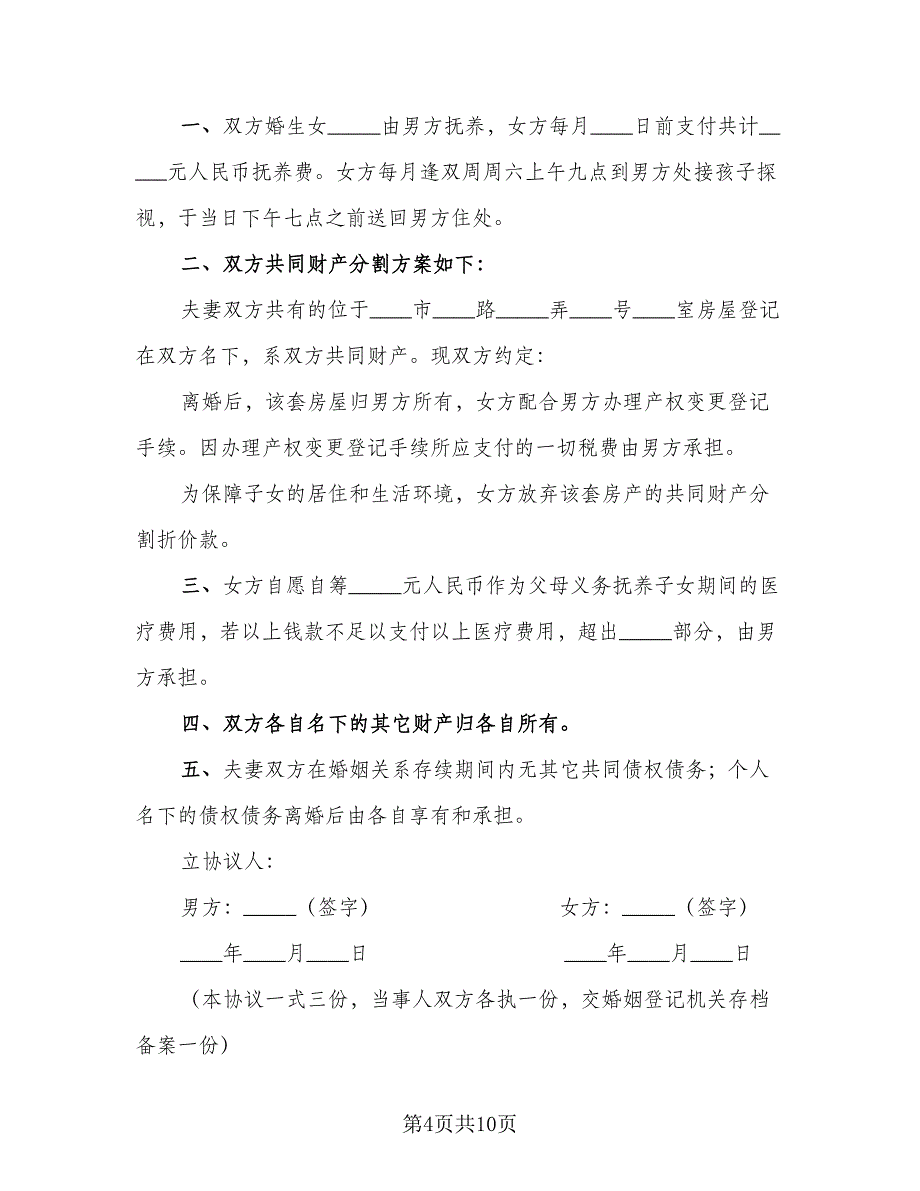 一、双方婚生女_____由男方抚养，女方每月____日前支付共计__
___元人民币抚养费。女方每月逢双周周六上午九点到男方处接孩子探
视，于当日下午七点之前送回男方住处。
二、双方共同财产分割方案如下：
夫妻双方共有的位于____市____路_____弄____号____室房屋登记
在双方名下，系双方共同财产。现双方约定：
离婚后，该套房屋归男方所有，女方配合男方办理产权变更登记
手续。因办理产权变更登记手续所应支付的一切税费由男方承担。
为保障子女的居住和生活环境，女方放弃该套房产的共同财产分
割折价款。
三、女方自愿自筹_____元人民币作为父母义务抚养子女期间的医
疗费用，若以上钱款不足以支付以上医疗费用，超出_____部分，由男
方承担。
四、双方各自名下的其它财产归各自所有。
五、夫妻双方在婚姻关系存续期间内无其它共同债权债务；个人
名下的债权债务离婚后由各自享有和承担。
立协议人：
男方：_____（签字） 女方：_____（签字）
____年____月____日 ____年____月____日
（本协议一式三份，当事人双方各执一份，交婚姻登记机关存档
备案一份）
第4页共10页